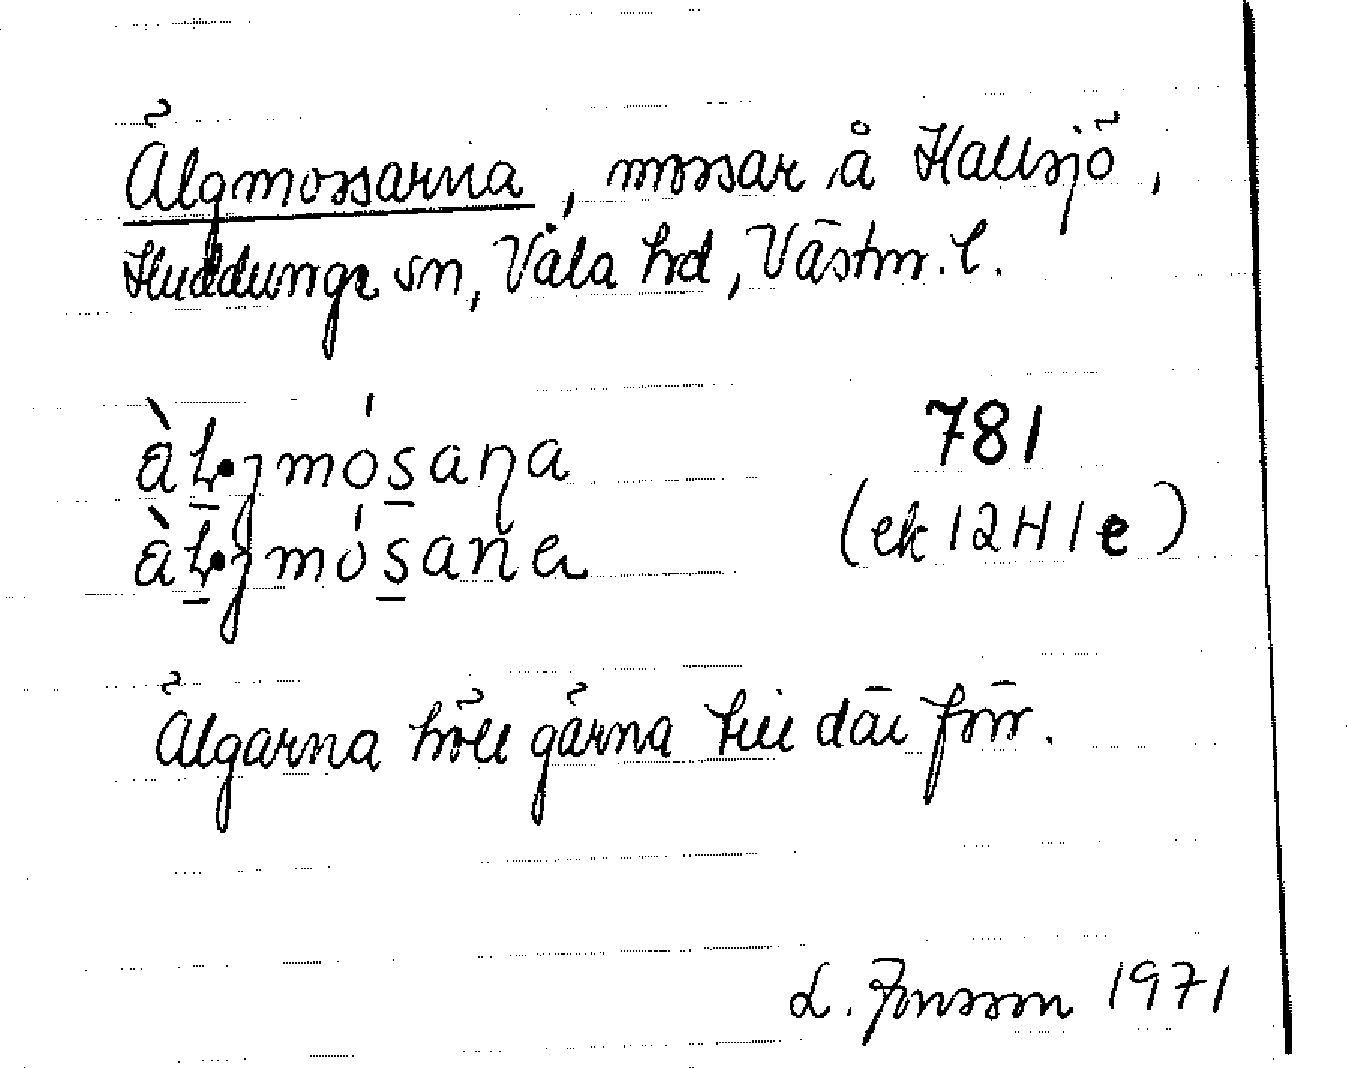 Älgmossarna, mossar å Hallsjö,
Huddunge sn, Våla hd, Västm. l.
781
(ek 12H1e)
Älgarna höll gärna till där förr.
L. Jonsson 1971